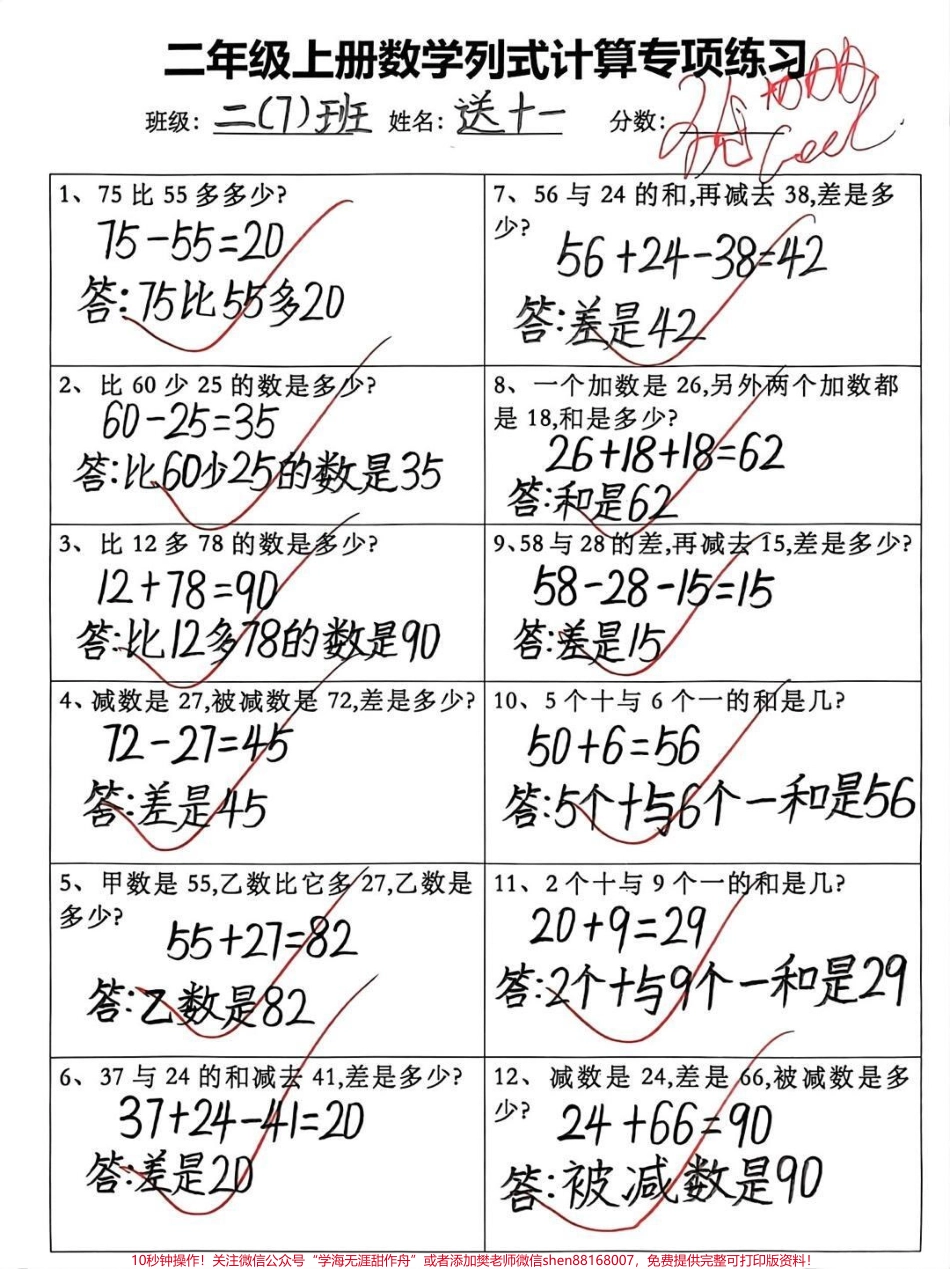 二年级上册数学列式计算专项练习
班级: 二(7)班 姓名: 送十一 分数:
1、75 比 55 多多少?
75-55=20
答:75比55多20
2、比 60 少 25 的数是多少?
60-25=35
答:比60少25的数是35
3、比 12 多 78 的数是多少?
12+78=90
答:比12多78的数是90
4、减数是 27,被减数是 72,差是多少?
72-27=45
答:差是45
5、甲数是 55,乙数比它多 27,乙数是
多少?
55+27=82
答:乙数是82
6、37 与 24 的和减去 41,差是多少?
37+24-41=20
答:差是20
7、56 与 24 的和,再减去 38,差是多
少?
56+24-38=42
答:差是42
8、一个加数是 26,另外两个加数都
是 18,和是多少?
26+18+18=62
答:和是62
9、58 与 28 的差,再减去 15,差是多少?
58-28-15=15
答:差是15
10、5 个十与 6 个一的和是几?
50+6=56
答:5个十与6个一和是56
11、2 个十与 9 个一的和是几?
20+9=29
答:2个十与9个一和是29
12、减数是 24,差是 66,被减数是多
少?
24+66=90
答:被减数是90
10秒钟操作!关注微信公众号“学海无涯甜作舟”或者添加樊老师微信shen88168007,免费提供完整可打印版资料!